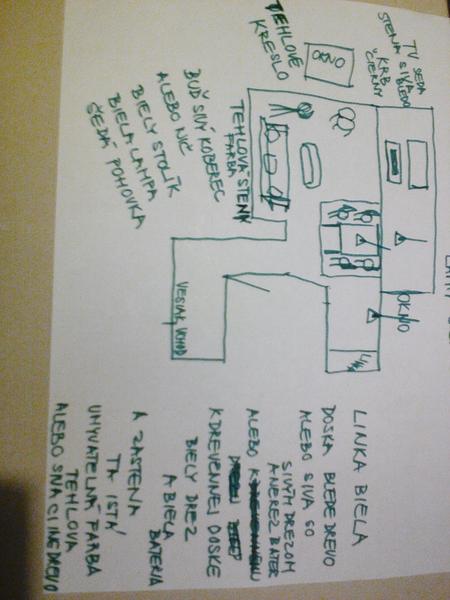 TV ŠEDÁ
STENA SIVÁ
KRB
ČIERNY
TEHLOVÉ
KRESLO
OKNO
TEHLOVÁ STENA
FARBA
BUĎ SIVÝ KOBEREC
ALEBO NIČ
BIELY STOLÍK
BIELA LAMPA
ŠEDÁ POHOVKA
OKNO
VEŠIAK VCHOD
LINKA BIELA
DOSKA BLEDÉ DREVO
ALEBO SIVÁ SO
SIVÝM DREZOM
A NEREZ BATER
ALEBO
K DREVENNEJ DOSKE
BIELY DREZ
A BIELA
BATERIA
A ZÁSTENA
TÁ ISTÁ/
UMÝVATEĽNÁ FARBA
TEHLOVÁ
ALEBO SIVÁ ČI INÉ DREVO